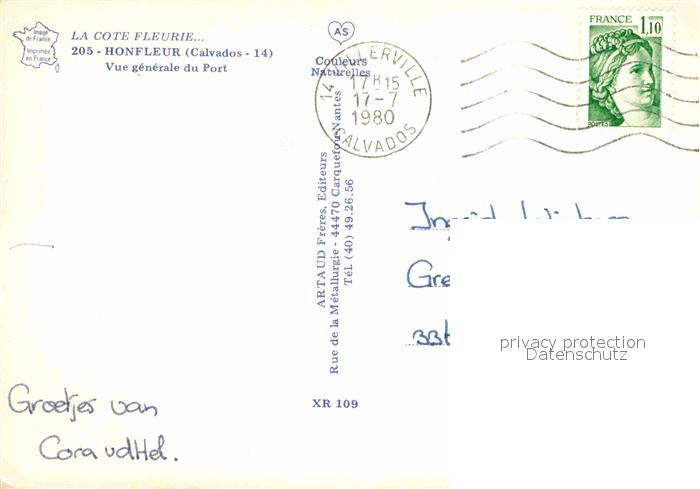 Image
de France
Imprimée
en France
LA COTE FLEURIE...
205 - HONFLEUR (Calvados - 14)
Vue générale du Port
AS
Couleurs
Naturelles
14 VILLERVILLE
17 H 15
17-7
1980
CALVADOS
FRANCE
1,10
POSTES
ARTAUD Frères, Editeurs
Rue de la Métallurgie - 44470 Carquefou-Nantes
Tél. (40) 49.26.56
Ingrid
Gre
privacy protection
Datenschutz
XR 109
Groetjes van
Cora vdHel.